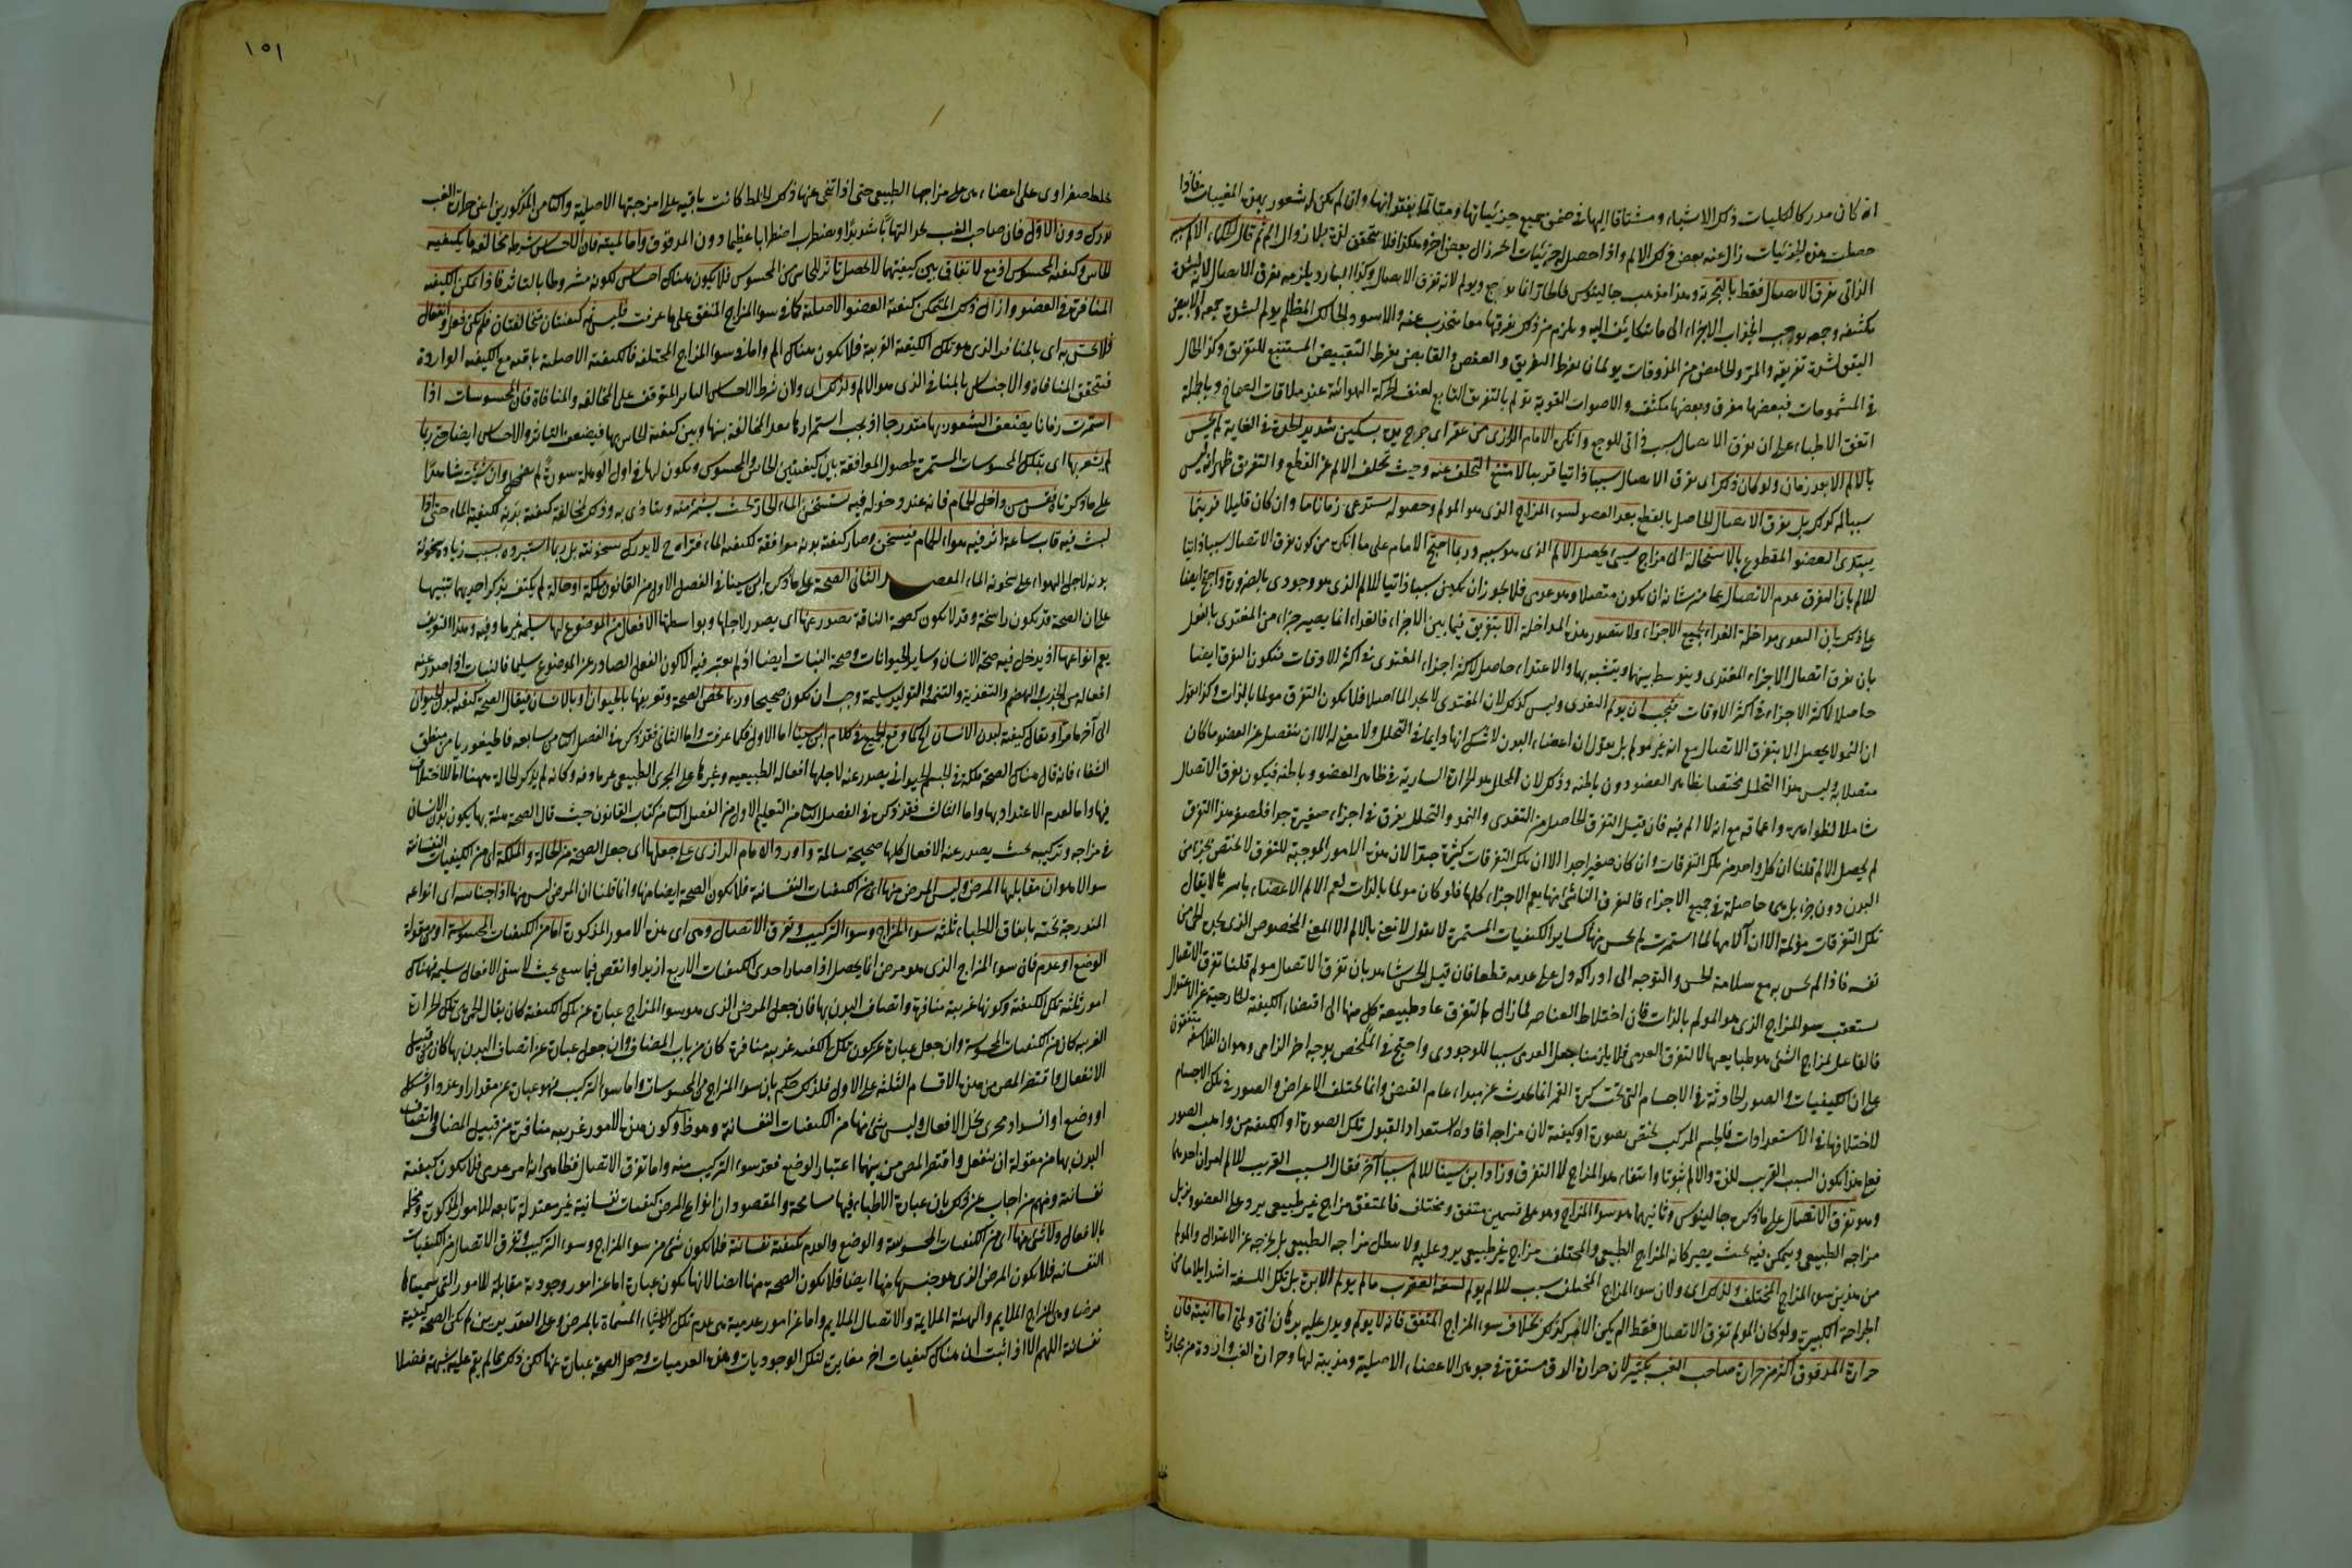 انه كان مدركا لكليات ذلك الاشياء ومشتاقا اليها في ضمن جميع جزئياتها ومقابلا بفقدانها وان لم يكن له شعور بهذه المغيبات فاذا
حصلت هذه الجزئيات زال عنه بعض ذلك الالم واذا حصل له جزئيات اخر زال بعض اخر وهكذا فلا يتحقق لذة بلا زوال الم ثم قال الحكماء الالم سببه
الذاتي تفرق الاتصال فقط بالتجربة وهذا مذهب جالينوس فالحار انما يوجع ويولم لانه تفرق الاتصال وكذا البارد يلزمه تفرق الاتصال لانه لشدة
تكثيفه وجمعه يوجب انجذاب الاجزاء الى ما يتكاثف اليه ويلزم من ذلك تفرقها مما ينجذب عنه والاسود الحالك المظلم يولم لشدة جمعه والابيض
اليقق لشدة تفريقه والمر والحامض من المذوقات يولمان لفرط التفريق والعفص والقابض لفرط التقبيض المستتبع للتفريق وكذا الحال
في المشمومات فبعضها مفرق وبعضها مكثف والاصوات القوية تولم بالتفريق التابع لعنف الحركة الهوائية عند ملاقات الصماخ وبالجملة
اتفق الاطباء على ان تفرق الاتصال سبب ذاتي للوجع وانكره الامام الرازي من عقر اي جرح يده بسكين شديد الحدة في الغاية لم يحس
بالالم الا بعد زمان ولو كان ذلك اي تفرق الاتصال سببا ذاتيا قريبا لامتنع التخلف عنه وحيث تخلف الالم عن القطع والتفرق ظهر انه ليس
سببا له كذلك بل تفرق الاتصال الحاصل بالقطع يعد العضو لسوء المزاج الذي هو المولم وحصوله يستدعي زمانا ما وان كان قليلا فريثما
يبتدئ العضو المقطوع بالاستحالة الى مزاج سيئ يحصل الالم الذي هو سببه وربما احتج الامام على ما انكره من كون تفرق الاتصال سببا ذاتيا
للالم بان التفرق عدم الاتصال عما من شانه ان يكون متصلا وهو عدمي فلا يجوز ان يكون سببا ذاتيا للالم الذي هو وجودي بالضرورة واحتج ايضا
على ذلك بان التغذي مداخلة الغذاء لجميع الاجزاء ولا يتصور هذه المداخلة الا بتفريق فيما بين الاجزاء فالغذاء انما يصير جزءا من المغتذي بالفعل
بان تفرق اتصال الاجزاء المغتذي ويتوسط بينها ويتشبه بها والاغتذاء حاصل لاكثر اجزاء المغتذي في اكثر الاوقات فيكون التفرق ايضا
حاصلا لاكثر الاجزاء في اكثر الاوقات فيجب ان يولم التغذي وليس كذلك لان المغتذي لا يجد الما اصلا فلا يكون التفرق مولما بالذات وكذا نقول
ان النمو لا يحصل الا بتفرق الاتصال مع انه غير مولم بل نقول ان اعضاء البدن لا شك انها دايما في التحلل ولا معنى له الا ان ينفصل عن العضو ما كان
متصلا به وليس هذا التحلل مختصا بظاهر العضو دون باطنه وذلك لان المحلل هو الحرارة السارية في ظاهر العضو وباطنه فيكون تفرق الاتصال
شاملا لظواهره واعماقه مع انه لا الم فيه فان قيل التفرق الحاصل من التغذي والنمو والتحلل تفرق في اجزاء صغيرة جدا فلصغر هذا التفرق
لم يحصل الالم قلنا ان كل واحد من تلك التفرقات وان كان صغيرا جدا الا ان تلك التفرقات كثيرة جدا لان هذه الامور الموجبة للتفرق لا تختص بجزء من
البدن دون جزء بل هي حاصلة في جميع الاجزاء فالتفرق الناشئ منها يعم الاجزاء كلها فلو كان مولما بالذات لعم الالم الاعضاء باسرها لا يقال
تلك التفرقات مؤلمة الا ان آلامها لما استمرت لم يحس منها كساير الكيفيات المستمرة لانا نقول لا نعني بالالم الا المعنى المخصوص الذي يجده الحي من
نفسه فاذا لم يحس به مع سلامة الحس والتوجه الى ادراكه دل على عدمه قطعا فان قيل الحس شاهد بان تفرق الاتصال مولم قلنا تفرق الاتصال
يستعقب سوء المزاج الذي هو المولم بالذات فان اختلاط العناصر لما زال بالتفرق عاد طبيعة كل منها الى اقتضاء الكيفية الخارجية عن الاعتدال
فالفاعل لمزاج الشئ هو طبايعها لا التفرق العدمي فلا يلزمنا جعل العدمي سببا للوجودي واحتج في الملخص بوجه اخر الزامي وهو ان الفلاسفة متفقون
على ان الكيفيات والصور الحادثة في الاجسام التي تحت كرة القمر انما تحدث عن مبداء عام الفيض وانما تختلف الاعراض والصور في تلك الاجسام
للاختلافها في الاستعدادات فالجسم المركب يختص بصورة او كيفية لان مزاجه افاده الاستعداد لقبول تلك الصورة او الكيفية من واهب الصور
فعلى هذا يكون السبب القريب للذة والالم ثبوتا وانتفاء هو المزاج لا التفرق وزاد ابن سينا للالم سببا آخر فقال السبب القريب للالم امران احدهما
وهو تفرق الاتصال على ما ذكره جالينوس وثانيهما هو سوء المزاج وهو على قسمين متفق ومختلف فالمتفق مزاج غير طبيعي يرد على العضو ويزيل
مزاجه الطبيعي ويتمكن فيه بحيث يصير كانه المزاج الطبيعي والمختلف مزاج غير طبيعي يرد عليه ولا يبطل مزاجه الطبيعي بل يخرجه عن الاعتدال والمولم
من هذين سوء المزاج المختلف ولذلك اي ولان سوء المزاج المختلف سبب للالم يولم لسعة العقرب ما لم يولم الابرة بل تلك اللسعة اشد ايلاما من
الجراحة الكبيرة ولو كان المولم تفرق الاتصال فقط لم يكن الامر كذلك بخلاف سوء المزاج المتفق فانه لا يولم ويدل عليه برهان اني ولمي اما انيته فان
حرارة المدقوق اكثر من حرارة صاحب الغب بكثير لان حرارة الدق مستقرة في جوهر الاعضاء الاصلية ومذيبة لها وحرارة الغب واردة من مجاورة
١٥١
خلط صفراوي على اعضاء هي على مزاجها الطبيعي حتى اذا تنحى عنها ذلك الخلط كانت باقية على امزجتها الاصلية والثاني من المذكورين اعني حرارة الغب
مدرك دون الاول فان صاحب الغب يجد التهابا شديدا ويضطرب اضطرابا عظيما دون المدقوق واما لميته فان الاحساس شرطه مخالفة ما لكيفية
الحاس وكيفية المحسوس اذ مع الاتفاق بين كيفيتهما لا يحصل تاثر للحاس من المحسوس فلا يكون هناك احساس لكونه مشروطا بالتاثر فاذا تمكن الكيفية
المنافرة في العضو وازال ذلك المتمكن كيفية العضو الاصلية كما في سوء المزاج المتفق على ما عرفت فليس ثمه كيفيتان متخالفتان فلم يكن فعل وانفعال
فلا يحس به اي بالمنافر الذي هو تلك الكيفية الغريبة فلا يكون هناك الم واما في سوء المزاج المختلف فالكيفية الاصلية باقية مع الكيفية الواردة
فيتحقق المنافاة والاحساس بالمنافي الذي هو الالم ولذلك اي ولان شرط الاحساس التاثر المتوقف على المخالفة والمنافاة فان المحسوسات اذا
استمرت زمانا يضعف الشعور بها متدرجا اذ بحسب استمرارها بعد المخالفة بينها وبين كيفية الحاس بها فيضعف التاثر والاحساس ايضا حتى ربما
لم يشعر بها اي بتلك المحسوسات المستمرة لحصول الموافقة بين كيفيتي الحاس والمحسوس ويكون لها في اول الوهلة سورة ثم يضمحل وان شئت شاهدا
على ما ذكرناه فقس من داخل الحمام فانه عند دخوله فيه يستسخن الماء الحار بحيث يشمئز منه ويتاذى به وذلك لمخالفة كيفية بدنه لكيفية الماء حتى اذا
لبث فيه قاب ساعة اثر فيه هواء الحمام فيسخن وصار كيفية بدنه موافقة لكيفية الماء فتراه ح لا يدرك سخونته بل ربما استبرده بسبب زيادة سخونة
بدنه لاجل الهواء على سخونة الماء المقصد الثاني الصحة على ما ذكره ابن سينا في الفصل الاول من القانون ملكة او حالة لم يكتف بذكر احديهما تنبيها
على ان الصحة قد يكون راسخة وقد لا يكون كصحة الناقه يصدر عنها اي يصدر لاجلها وبواسطتها الافعال من الموضوع لها سليمة غير ماوفة وهذا التعريف
يعم انواعها اذ يدخل فيه صحة الانسان وساير الحيوانات وصحة النبات ايضا اذ لم يعتبر فيه الا كون الفعل الصادر عن الموضوع سليما فالنبات اذا صدر عنه
افعاله من الجذب والهضم والتغذية والتنمية والتوليد سليمة وجب ان يكون صحيحا وربما يخص الصحة وتعريفها بالحيوان او بالانسان فيقال الصحة كيفية لبدن الحيوان
الى آخر ما مر او يقال كيفية لبدن الانسان الى كما وقع الجميع في كلام ابن سينا اما الاول فكما عرفت واما الثاني فقد ذكره في الفصل الثامن من سابعة قاطيغورياس من منطق
الشفاء فانه قال هناك الصحة ملكة في الجسم الحيواني يصدر عنه لاجلها افعاله الطبيعية وغيرها على المجرى الطبيعي غير ماوفة وكانه لم يذكر الحالة ههنا اما للاختلاف
فيها واما لعدم الاعتداد بها واما الثالث فقد ذكره في الفصل الثامن من التعليم الاول من الفصل الثاني من كتاب القانون حيث قال الصحة هيئة بها يكون بدن الانسان
في مزاجه وتركيبه بحيث يصدر عنه الافعال كلها صحيحة سالمة واورد الامام الرازي على جعلها اي جعل الصحة من الحالة والملكة اي من الكيفيات النفسانية
سوالا هو ان مقابلها المرض وليس المرض منها اي من الكيفيات النفسانية فلا يكون الصحة ايضا منها وانما قلنا ان المرض ليس منها اذ اجناسه اي انواعه
المندرجة تحته باتفاق الاطباء ثلثة سوء المزاج وسوء التركيب وتفرق الاتصال وهي اي هذه الامور المذكورة اما من الكيفيات المحسوسة او من مقولة
الوضع او عدم فان سوء المزاج الذي هو مرض انما يحصل اذا صار احدى الكيفيات الاربع ازيد او انقص مما ينبغي بحيث لا يبقى الافعال سليمة فهناك
امور ثلثة تلك الكيفية وكونها غريبة منافرة واتصاف البدن بها فان جعل المرض الذي هو سوء المزاج عبارة عن تلك الكيفية كان يقال الحمى هي تلك الحرارة
الغريبة كان من الكيفيات المحسوسة وان جعل عبارة عن كون تلك الكيفية غريبة منافرة كان من باب المضاف وان جعل عبارة عن اتصاف البدن بها كان من قبيل
الانفعال واقتصر المصن من هذه الاقسام الثلثة على الاول فلذلك حكم بان سوء المزاج من المحسوسات واما سوء التركيب فهو عبارة عن مقدار او عدد او شكل
او وضع او انسداد مجرى يخل الافعال وليس شئ منها من الكيفيات النفسانية وهو ظ وكون هذه الامور غريبة منافرة من قبيل المضاف واتصاف
البدن بها من مقولة ان ينفعل واقتصر المصن من بينها اعتبار الوضع فعد سوء التركيب منه واما تفرق الاتصال فظاهر انه امر عدمي فلا يكون كيفية
نفسانية ومنهم من اجاب عن ذلك بان عبارة الاطباء فيها مسامحة والمقصود ان انواع المرض كيفيات نفسانية غير معتدلة تابعة للامور المذكورة ومخلة
بالافعال ولا شئ منها اي من الكيفيات المحسوسة والوضع والعدم بكيفية نفسانية فلا يكون شئ من سوء المزاج وسوء التركيب وتفرق الاتصال من الكيفيات
النفسانية فلا يكون المرض الذي هو جنسها منها ايضا فلا يكون الصحة منها ايضا لانها يكون عبارة اما عن امور وجودية مقابلة للامور التي سميناها
مرضا وهي المزاج الملايم والهيئة الملايمة والاتصال الملايم واما عن امور عدمية هي عدم تلك الاشياء المسماة بالمرض وعلى التقديرين لم تكن الصحة كيفية
نفسانية اللهم الا اذا ثبت ان هناك كيفيات اخر مغايرة لتلك الوجوديات وهذه العدميات وجعل الصحة عبارة عنها لكن ذلك مما لم يقم عليه شبهة فضلا